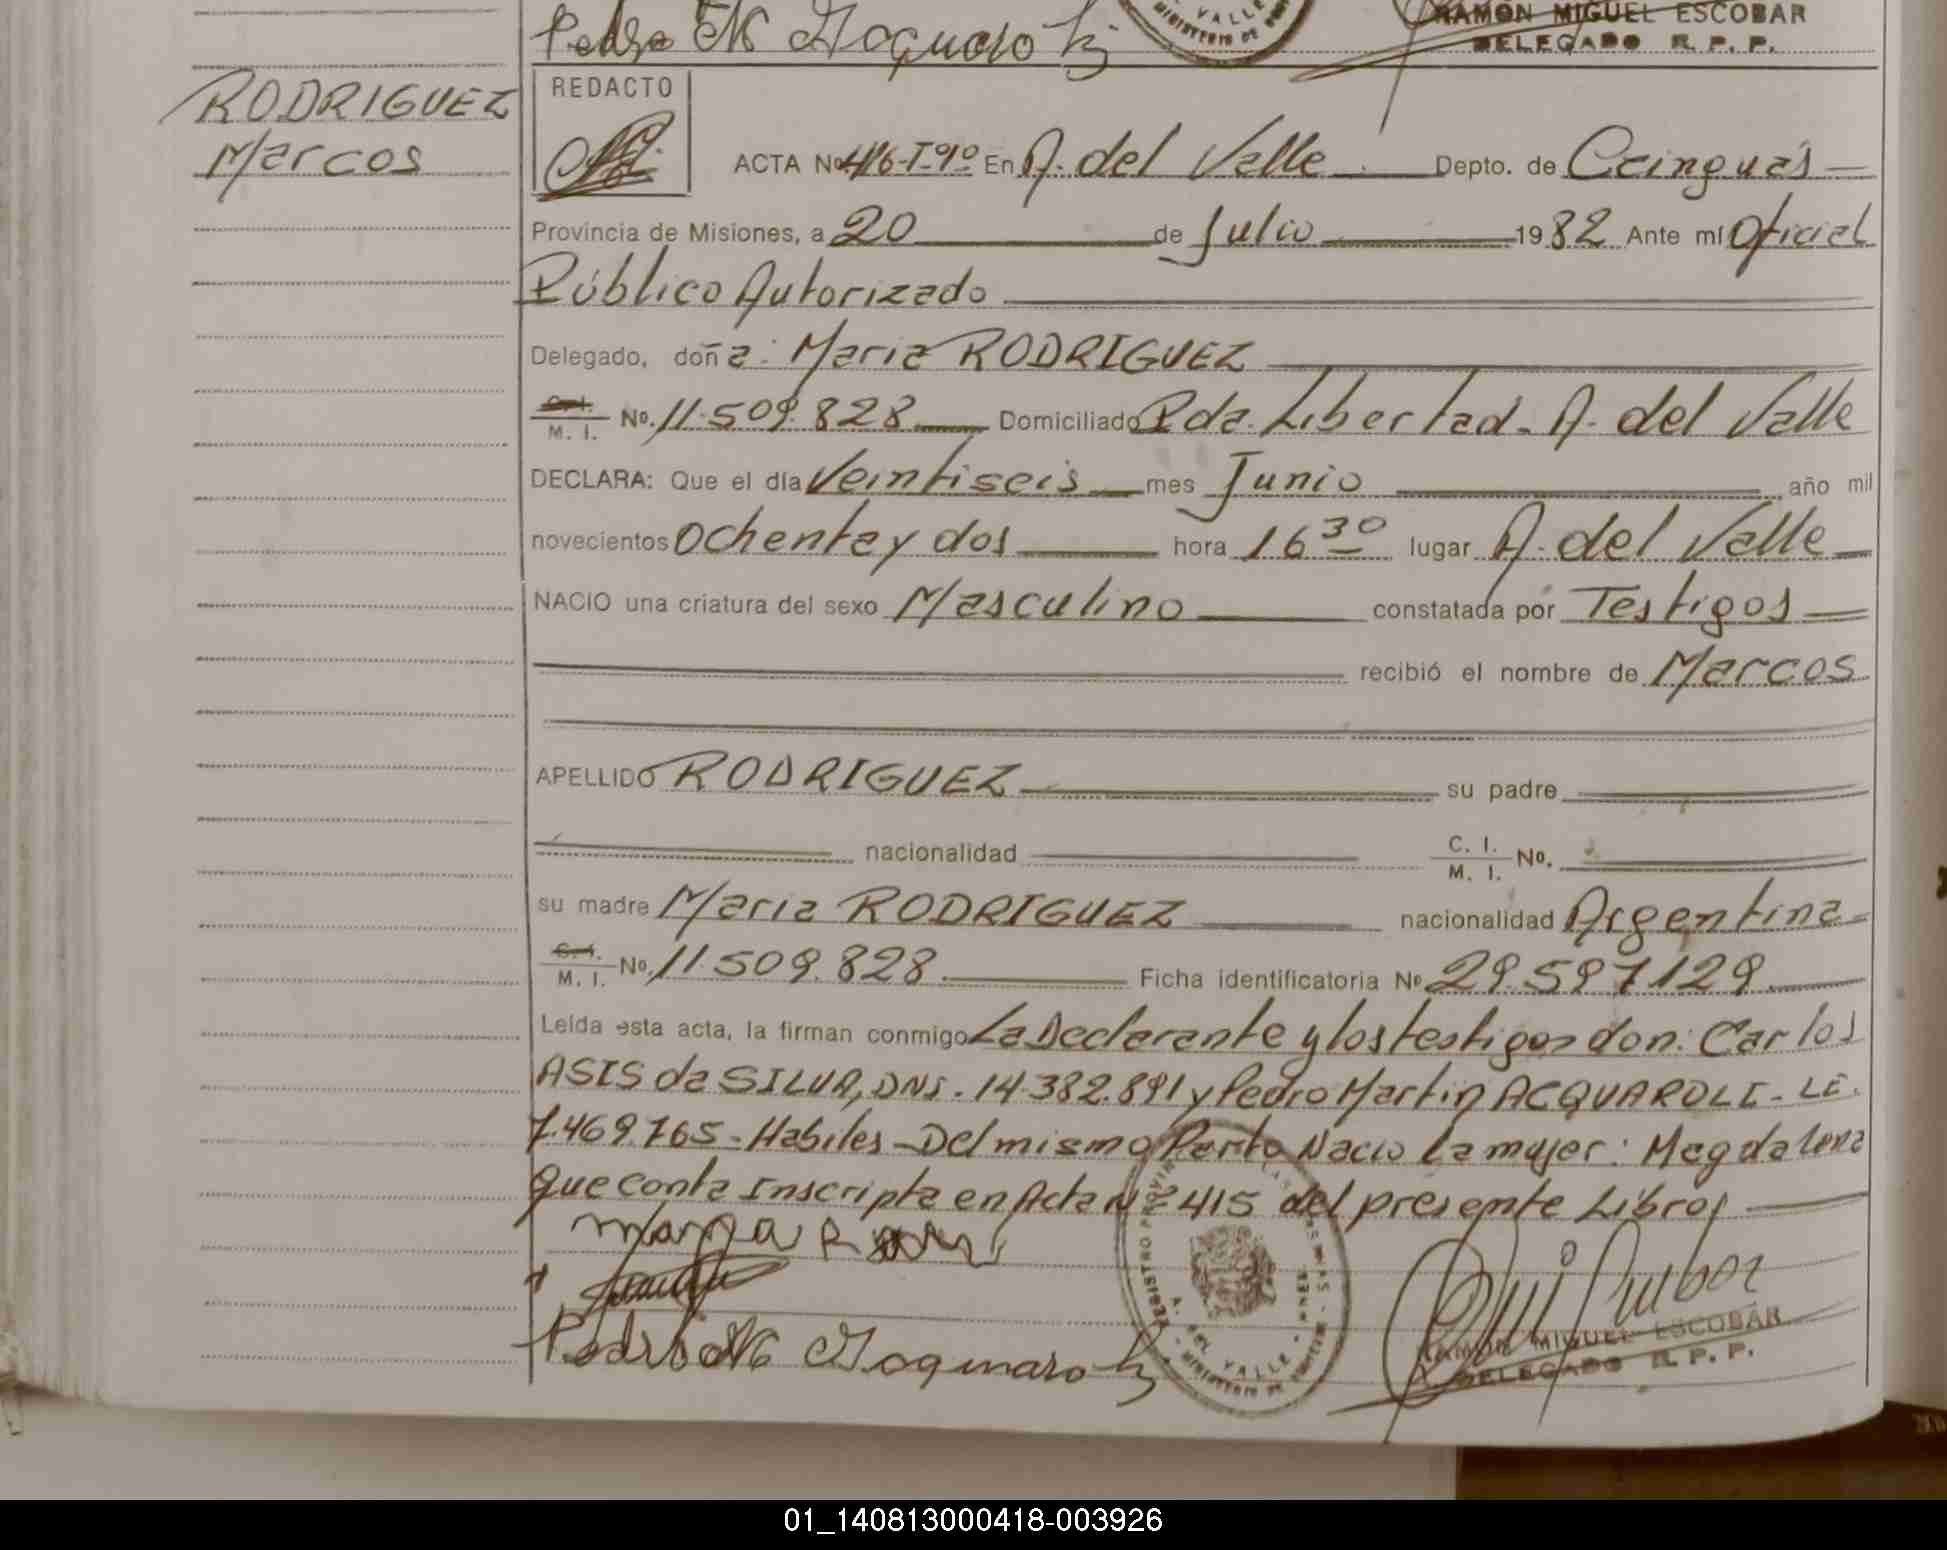 RAMON MIGUEL ESCOBAR
DELEGADO R. P. P.
RODRIGUEZ
Marcos
REDACTO
ACTA Nº 416-Tº9º En A. del Valle Depto. de Cainguás
Provincia de Misiones, a 20 de Julio 1982 Ante mí Oficial
Público Autorizado
Delegado, doña: Maria RODRIGUEZ
C. I. M. I. Nº. 11.509.828 Domiciliado Pda. Libertad. A. del Valle
DECLARA: Que el día Veintiseis mes Junio año mil
novecientos Ochenta y dos hora 16 30 lugar A. del Valle
NACIO una criatura del sexo Masculino constatada por Testigos
recibió el nombre de Marcos
APELLIDO RODRIGUEZ su padre
nacionalidad C. I. M. I. Nº.
su madre Maria RODRIGUEZ nacionalidad Argentina
C. I. M. I. Nº. 11.509.828 Ficha identificatoria Nº 29.597129
Leída esta acta, la firman conmigo La Declarante y los testigos don: Carlos
ASIS da SILVA, DNI. 14.382.891 y Pedro Martin ACQUAROLI - LE.
7.469.765 - Habiles - Del mismo Parto Nacio la mujer: Magdalena
que conta Inscripta en Acta Nº 415 del presente Libro
RAMON MIGUEL ESCOBAR
DELEGADO R. P. P.
01_140813000418-003926